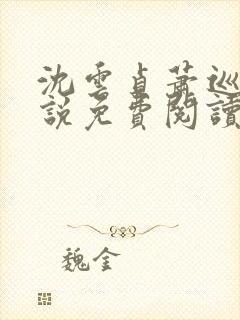 沈雲貞蕭巡
說免費閱讀
魏金